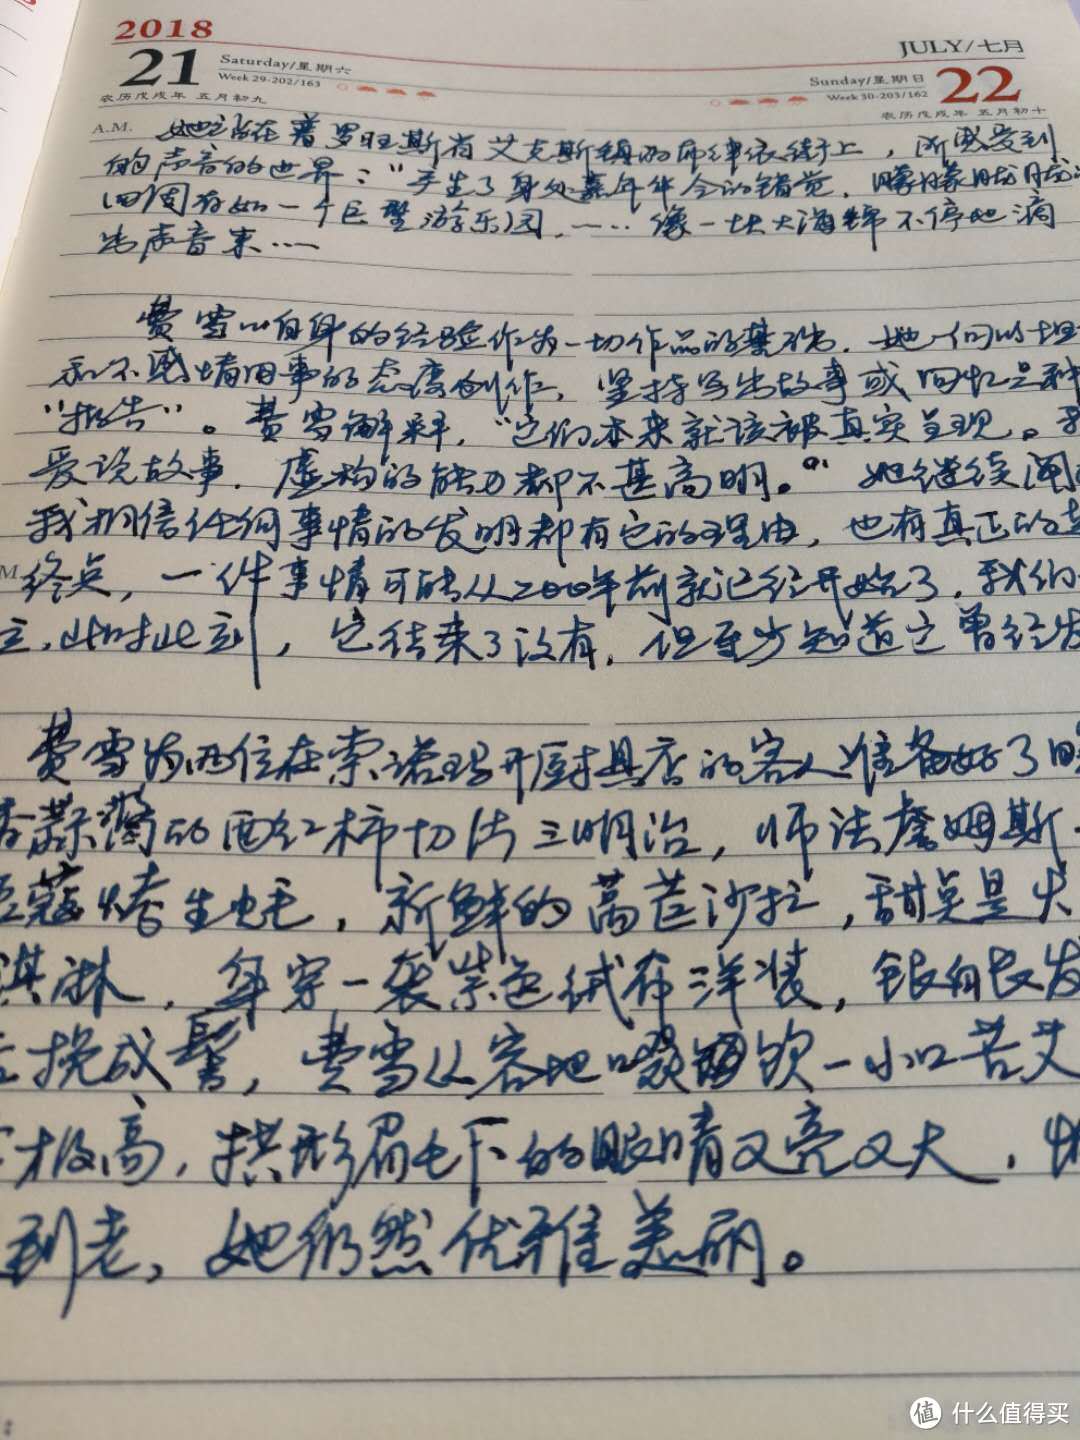 2018
JULY/七月
21
Saturday/星期六
Week 29-202/163
农历戊戌年 五月初九
Sunday/星期日
Week 30-203/162
22
农历戊戌年 五月初十
A.M. 她站在普罗旺斯省艾克斯镇的 街上，所感受到
的声音的世界："产生了身处嘉年华会的错觉，朦朦胧胧
四周有如一个巨型游乐园，……像一块大海绵不停地滴
出声音来……
费雪以自身的经验作为一切作品的基础，她一向以坦
和不感情用事的态度创作，坚持写出故事或回忆是种
"报告"。费雪解释，"它们本来就该被真实呈现。我
爱说故事，虚构的能力都不甚高明。"她继续阐
我相信任何事情的发明都有它的理由，也有真正的起
M 终点，一件事情可能从200年前就已经开始了，我们
立，此时此刻，它结束了没有，但至少知道它曾经发
费雪为两位在索诺玛开厨具店的客人准备好了
香蒜酱的西红柿切片三明治，师法詹姆斯
豆蔻烤生蚝，新鲜的莴苣沙拉，甜点是
淇淋，身穿一袭紫色绒布洋装，银白长发
挽成髻，费雪从容地啜饮一小口苦艾
极高，拱形眉毛下的眼睛又亮又大，
到老，她仍然优雅美丽。
值 什么值得买